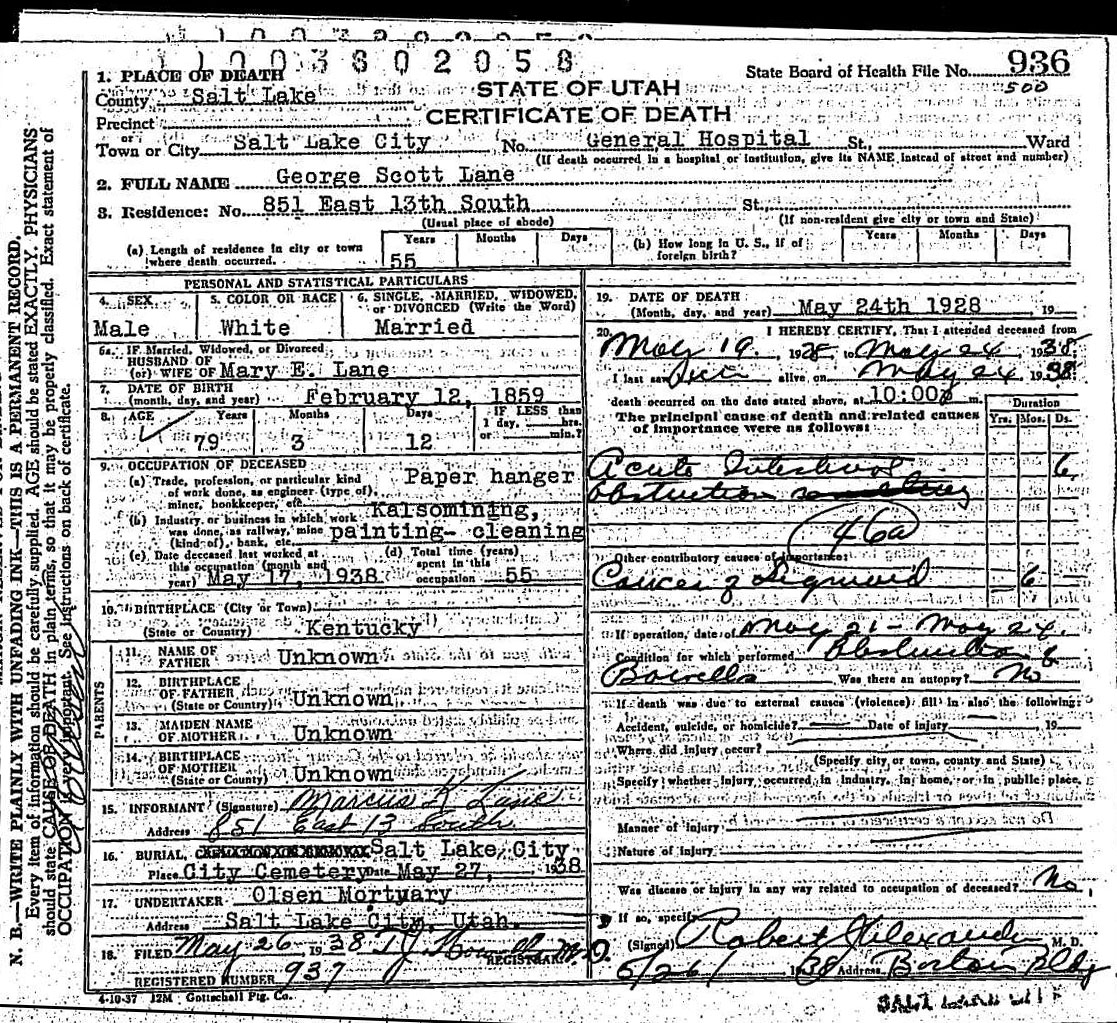 1003802058
State Board of Health File No. 936
500
STATE OF UTAH
CERTIFICATE OF DEATH
1. PLACE OF DEATH
County Salt Lake
Precinct
or
Town or City Salt Lake City No. General Hospital St., Ward
(If death occurred in a hospital or institution, give its NAME instead of street and number)
2. FULL NAME George Scott Lane
3. Residence: No. 851 East 13th South St.
(Usual place of abode) (If non-resident give city or town and State)
(a) Length of residence in city or town where death occurred. Years 55 Months Days
(b) How long in U. S., if of foreign birth? Years Months Days
PERSONAL AND STATISTICAL PARTICULARS
4. SEX Male
5. COLOR OR RACE White
6. SINGLE, MARRIED, WIDOWED, or DIVORCED (Write the Word) Married
6a. IF Married, Widowed, or Divorced
HUSBAND OF
(or) WIFE OF Mary E. Lane
7. DATE OF BIRTH
(month, day, and year) February 12, 1859
8. AGE Years 79 Months 3 Days 12 IF LESS than 1 day, hrs. or min.?
9. OCCUPATION OF DECEASED
(a) Trade, profession, or particular kind of work done, as engineer (type of), miner, bookkeeper, etc. Paper hanger
(b) Industry or business in which work was done, as railway, mine (kind of), bank, etc. Kalsomining, painting- cleaning
(c) Date deceased last worked at this occupation (month and year) May 17, 1938
(d) Total time (years) spent in this occupation 55
10. BIRTHPLACE (City or Town)
(State or Country) Kentucky
PARENTS
11. NAME OF FATHER Unknown
12. BIRTHPLACE OF FATHER (State or Country) Unknown
13. MAIDEN NAME OF MOTHER Unknown
14. BIRTHPLACE OF MOTHER (State or Country) Unknown
15. INFORMANT (Signature) Marcus K Lane
Address 851 East 13 South
16. BURIAL, CREMATION OR REMOVAL Salt Lake City
Place City Cemetery Date May 27, 1938
17. UNDERTAKER Olsen Mortuary
Address Salt Lake City, Utah.
18. FILED May 26 1938
REGISTRAR
REGISTERED NUMBER 937
4-10-37 12M Gottschall Ptg. Co.
19. DATE OF DEATH
(Month, day, and year) May 24th 1928 19
20. I HEREBY CERTIFY, That I attended deceased from
May 19 1938 to May 24 1938
I last saw him alive on May 24 1938
death occurred on the date stated above, at 10:00 m.
The principal cause of death and related causes of importance were as follows:
Duration
Yrs. Mos. Ds.
Acute Intestinal 6
Obstruction
46a
Other contributory causes of importance:
Cancer of Sigmoid 6
If operation, date of May 21 - May 24
Condition for which performed Obstruction of
Bowells Was there an autopsy? No
If death was due to external causes (violence) fill in also the following:
Accident, suicide, or homicide? Date of injury 19
Where did injury occur?
(Specify city, or town, county and State)
Specify whether injury occurred in industry, in home, or in public place,
Manner of injury
Nature of injury
Was disease or injury in any way related to occupation of deceased? No,
If so, specify
(Signed) Robert Alexander M. D.
5/26/1938 Address Boston Bldg
N. B.—WRITE PLAINLY WITH UNFADING INK—THIS IS A PERMANENT RECORD.
Every item of information should be carefully supplied. AGE should be stated EXACTLY. PHYSICIANS
should state CAUSE OF DEATH in plain terms, so that it may be properly classified. Exact statement of
OCCUPATION is very important. See instructions on back of certificate.